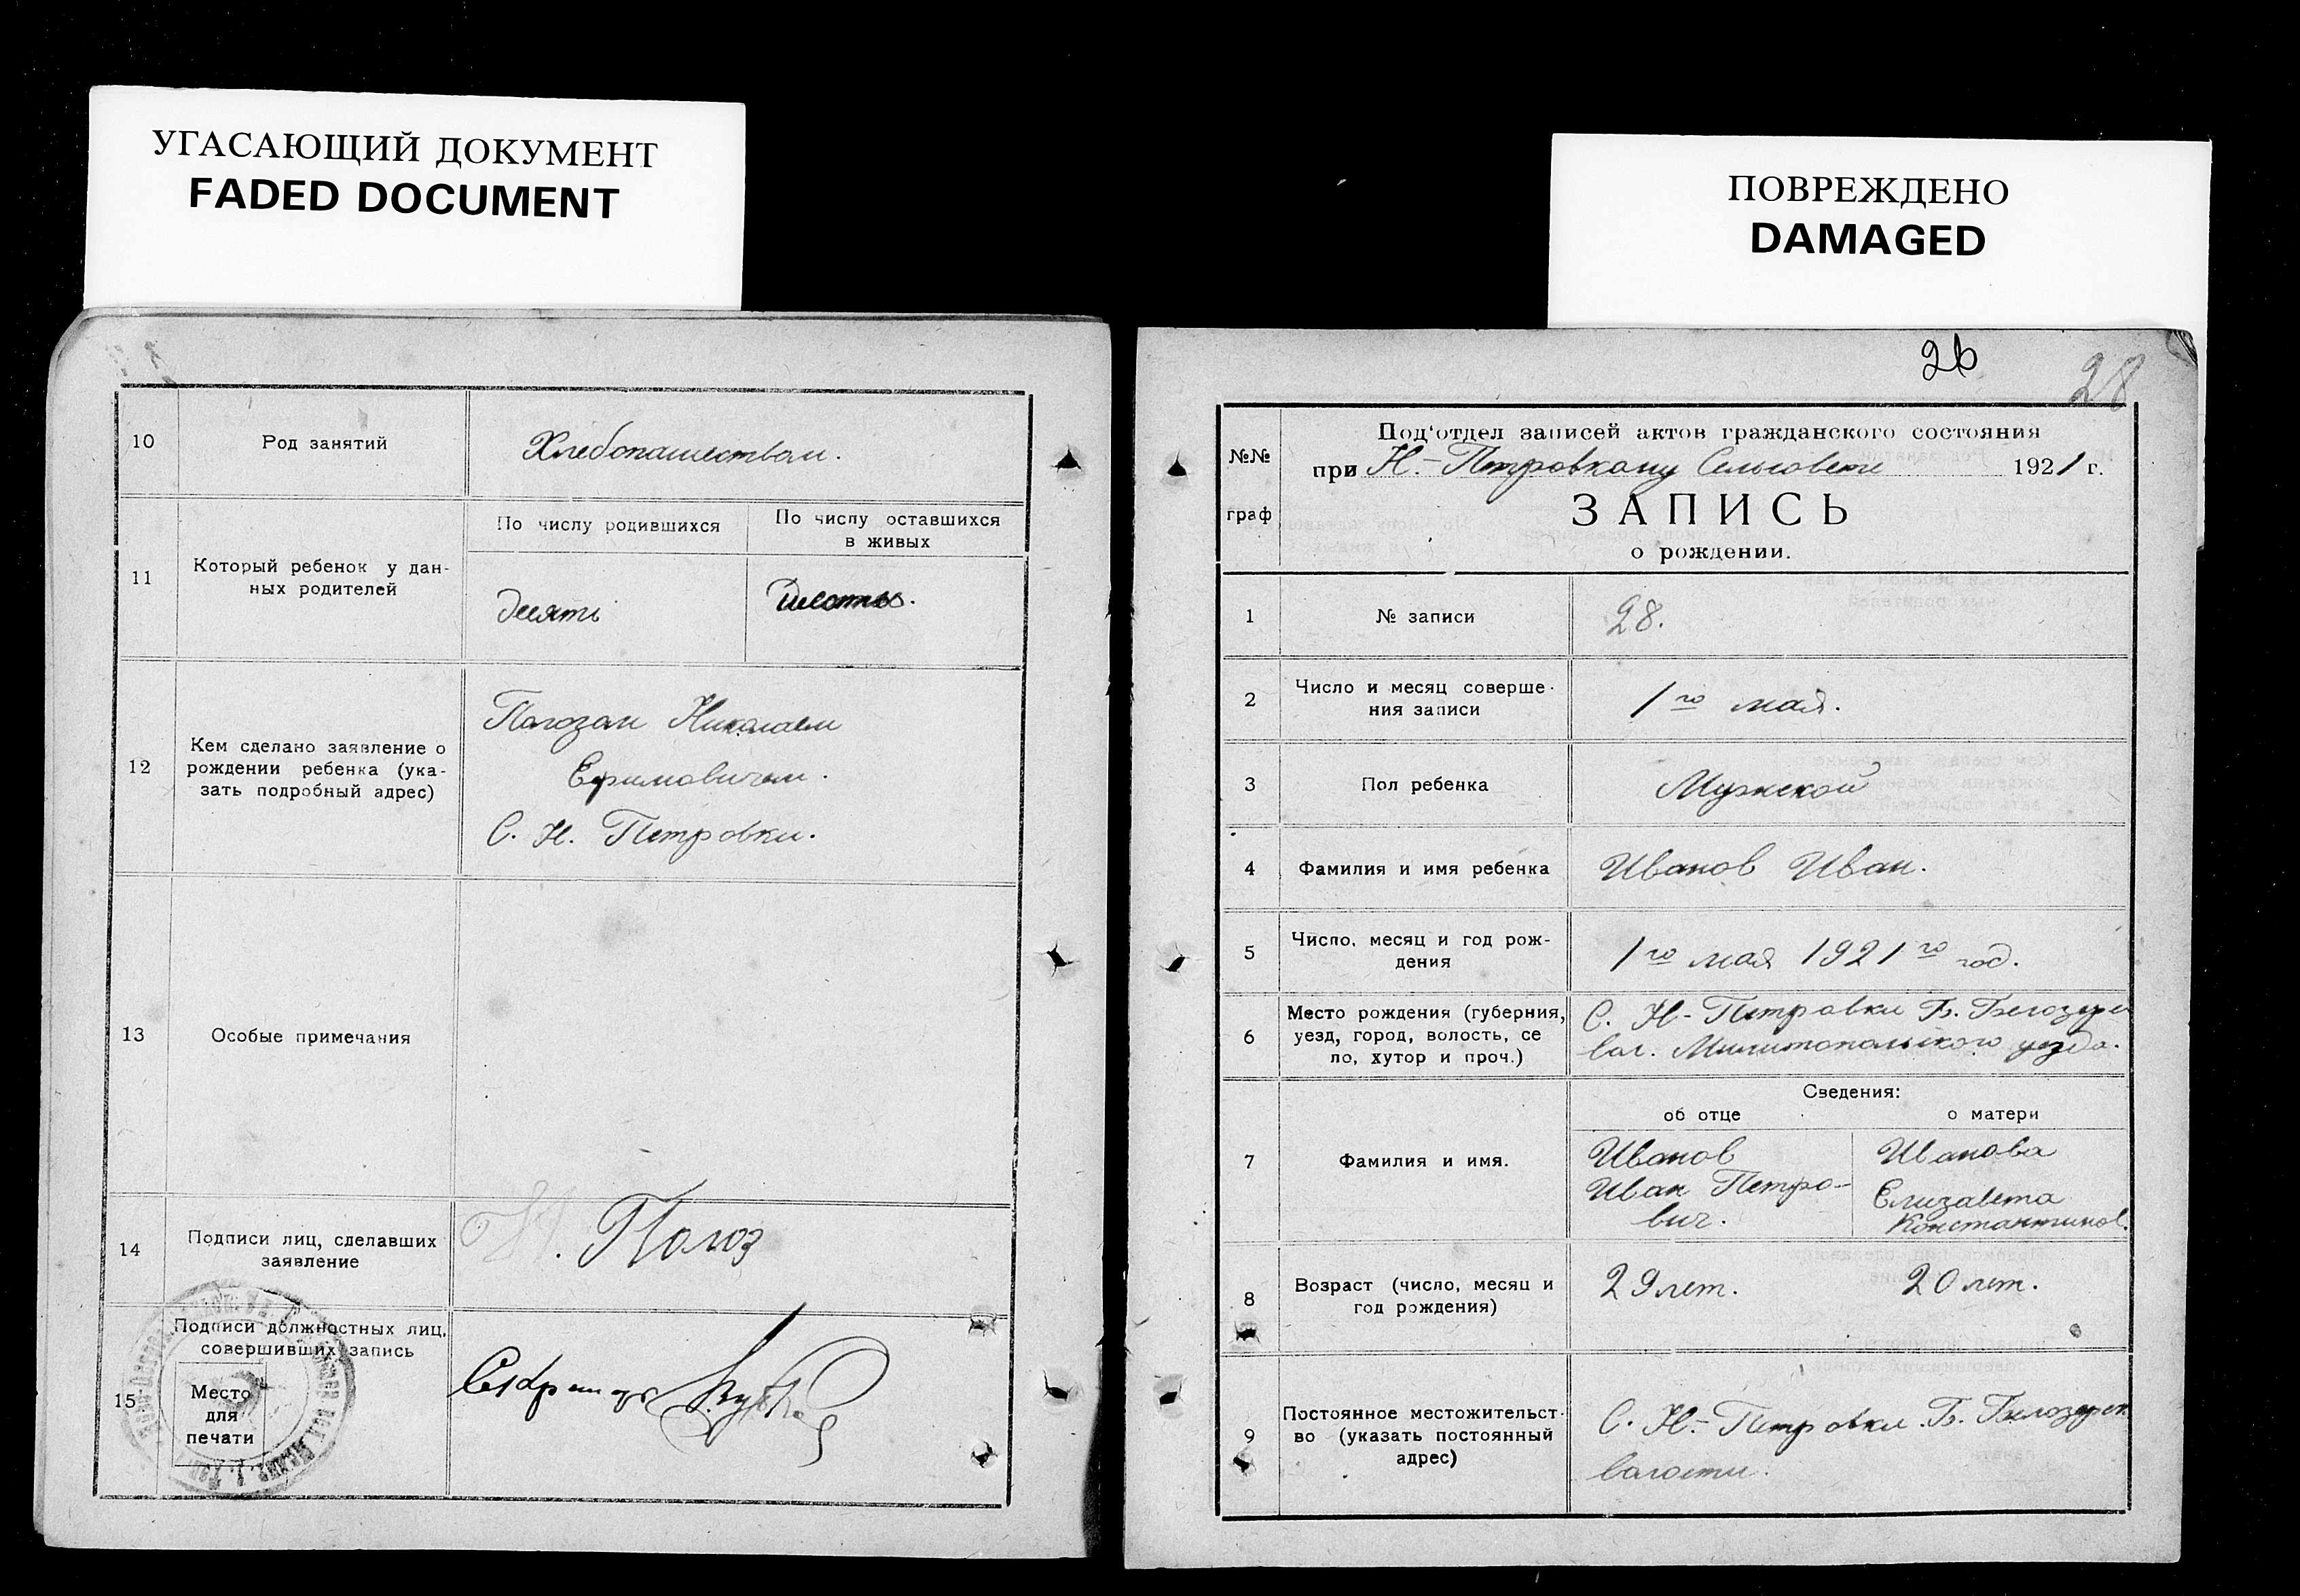 УГАСАЮЩИЙ ДОКУМЕНТ
FADED DOCUMENT
10
Род занятий
Хлебопашеством.
11
Который ребенок у дан-
ных родителей
По числу родившихся
По числу оставшихся
в живых
десять
12
Кем сделано заявление о
рождении ребенка (ука-
зать подробный адрес)
Полозом Николаем
Ефимовичем.
С. Н. Петровки.
13
Особые примечания
14
Подписи лиц, сделавших
заявление
Н. Полоз
15
Подписи должностных лиц,
совершивших запись
Место
для
печати
Секретарь
ПОВРЕЖДЕНО
DAMAGED
26
28
№№
граф
Под'отдел записей актов гражданского состояния
при Н.-Петровкому Сельсовете 1921 г.
ЗАПИСЬ
о рождении.
1
№ записи
28.
2
Число и месяц соверше-
ния записи
1го мая.
3
Пол ребенка
Мужской
4
Фамилия и имя ребенка
Иванов Иван.
5
Число, месяц и год рож-
дения
1го мая 1921го год.
6
Место рождения (губерния,
уезд, город, волость, се
ло, хутор и проч.)
С. Н-Петровки Б. Белозерс
вол. Мелитопольского уезда.
Сведения:
об отце
о матери
7
Фамилия и имя.
Иванов
Иван Петро-
вич.
Иванова
Елизавета
Константинов.
8
Возраст (число, месяц и
год рождения)
29 лет.
20 лет.
9
Постоянное местожительст-
во (указать постоянный
адрес)
С. Н.-Петровки Б. Белозерск
волости.